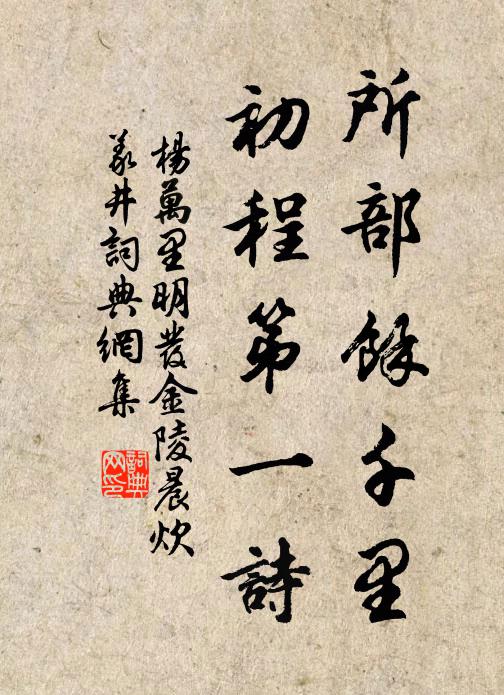 所部餘千里
初程第一詩
楊萬里明發金陵晨炊
義井詞典網集
詞典網印